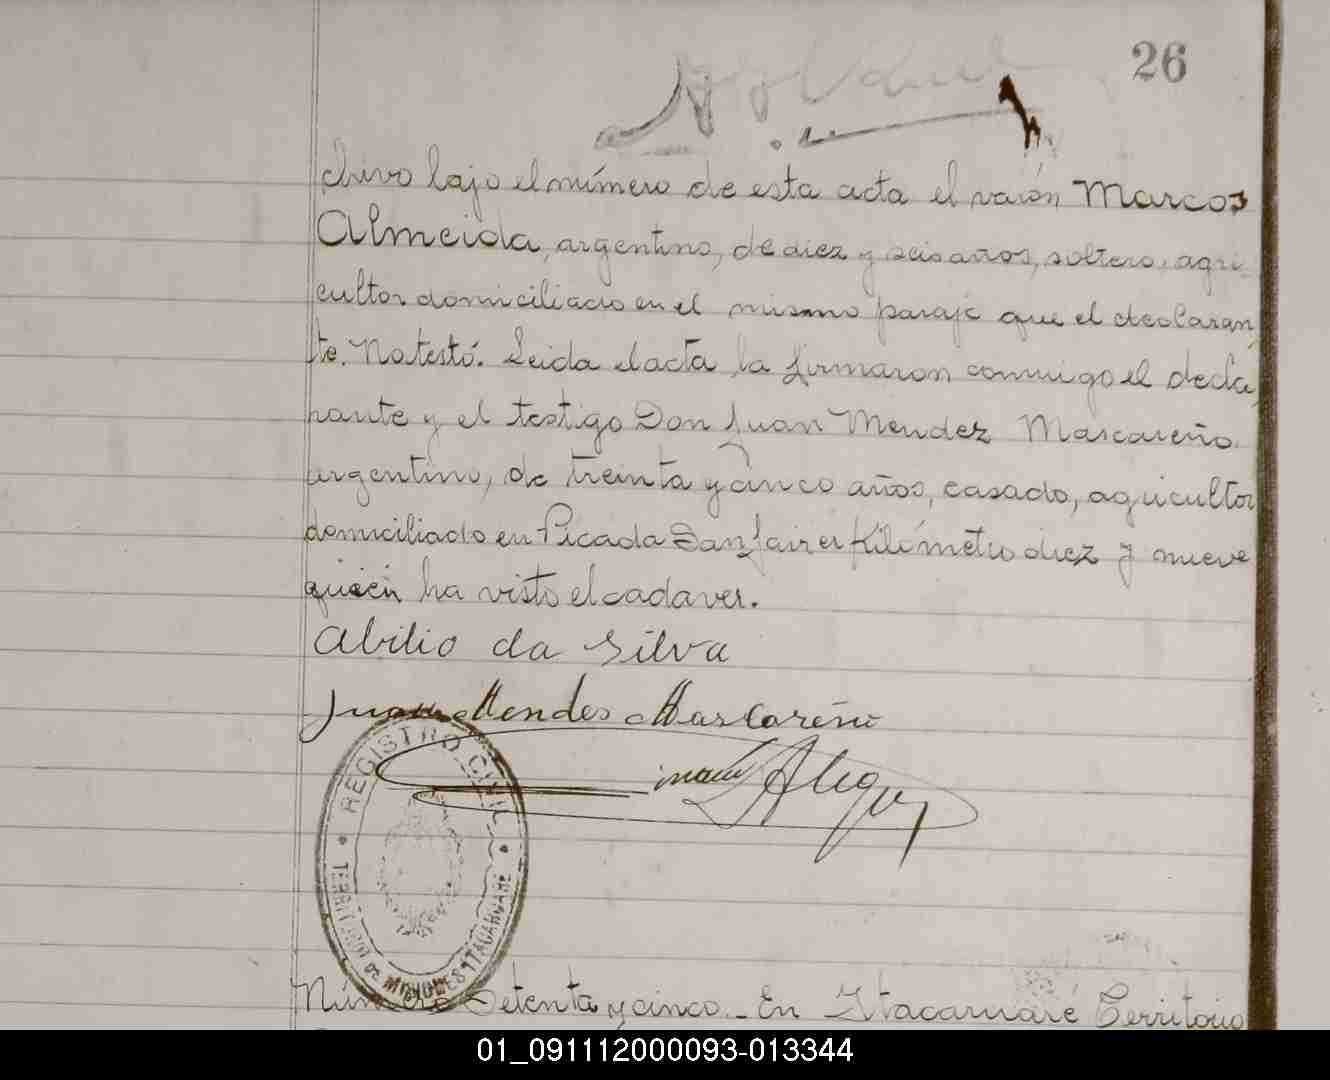 26
chivo bajo el número de esta acta el varón Marcos
Almeida, argentino, de diez y seis años, soltero, agri-
cultor domiciliado en el mismo paraje que el declaran
te. No testó. Leida el acta la firmaron conmigo el decla
rante y el testigo Don Juan Mendez Mascareño
argentino, de treinta y cinco años, casado, agricultor
domiciliado en Picada San Javier Kilómetro diez y nueve
quien ha visto el cadaver.
Abilio da Silva
Juan Mendes Mascareño
REGISTRO CIVIL
TERRITORIO DE MISIONES ITACARUARÉ
Número Setenta y cinco.- En Itacaruaré Territorio
01_091112000093-013344